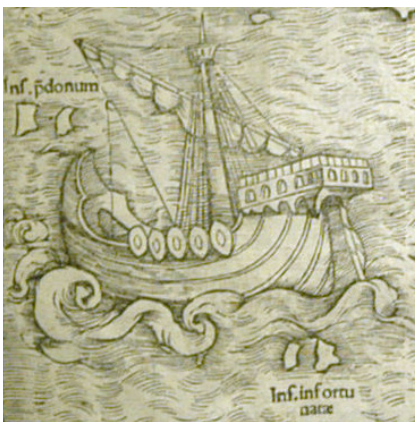 Inſ. p̄donum
Inſ. infortu
natæ